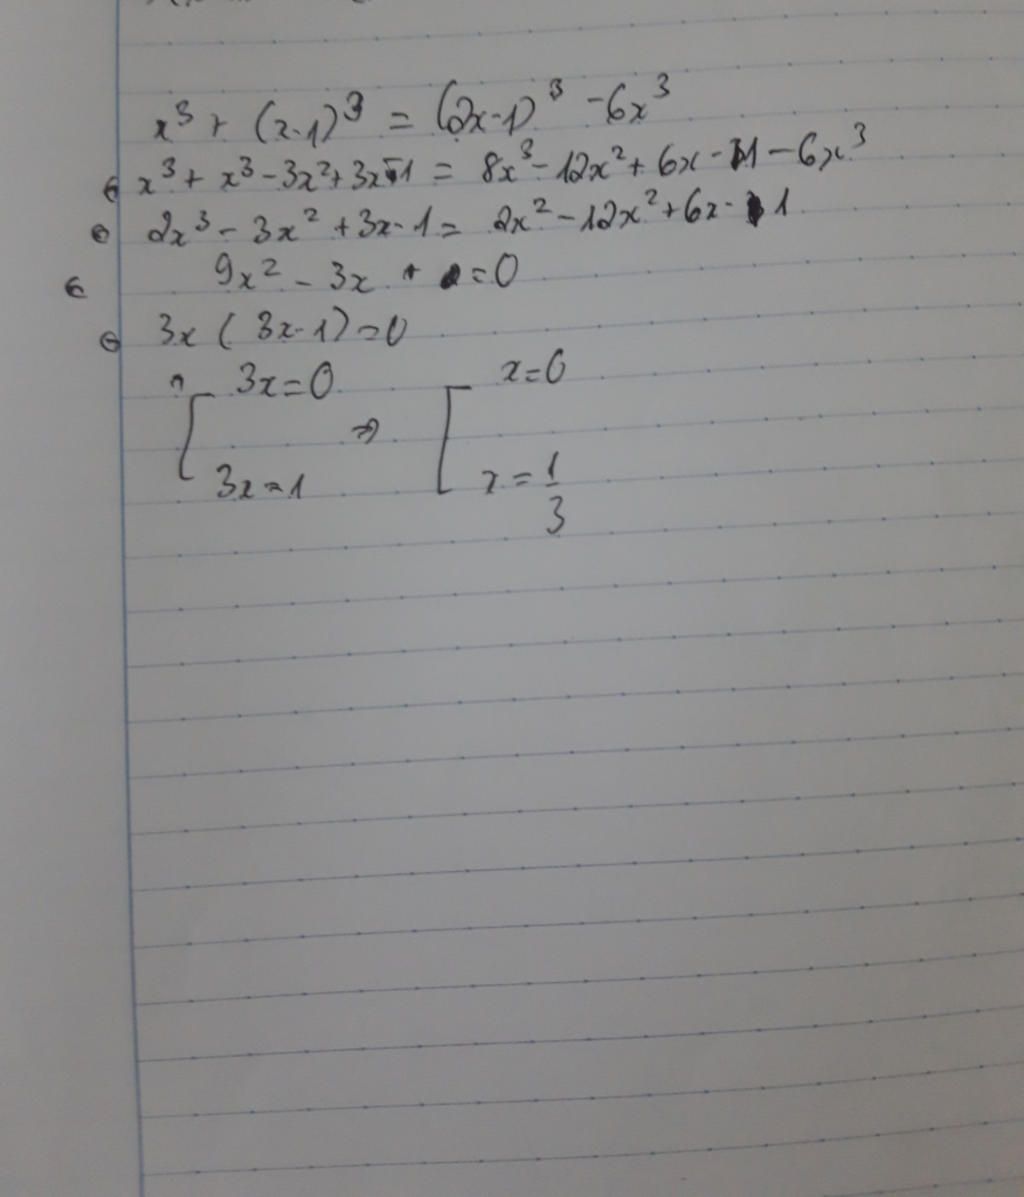 x³ + (x-1)³ = (2x-1)³ - 6x³
⇔ x³ + x³ - 3x² + 3x - 1 = 8x³ - 12x² + 6x - 1 - 6x³
⇔ 2x³ - 3x² + 3x - 1 = 2x² - 12x² + 6x - 1
⇔ 9x² - 3x = 0
⇔ 3x (3x-1) = 0
[ 3x = 0 ⇒ [ x = 0
3x = 1 x = 1/3